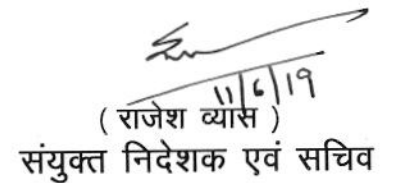 11/6/19
( राजेश व्यास )
संयुक्त निदेशक एवं सचिव